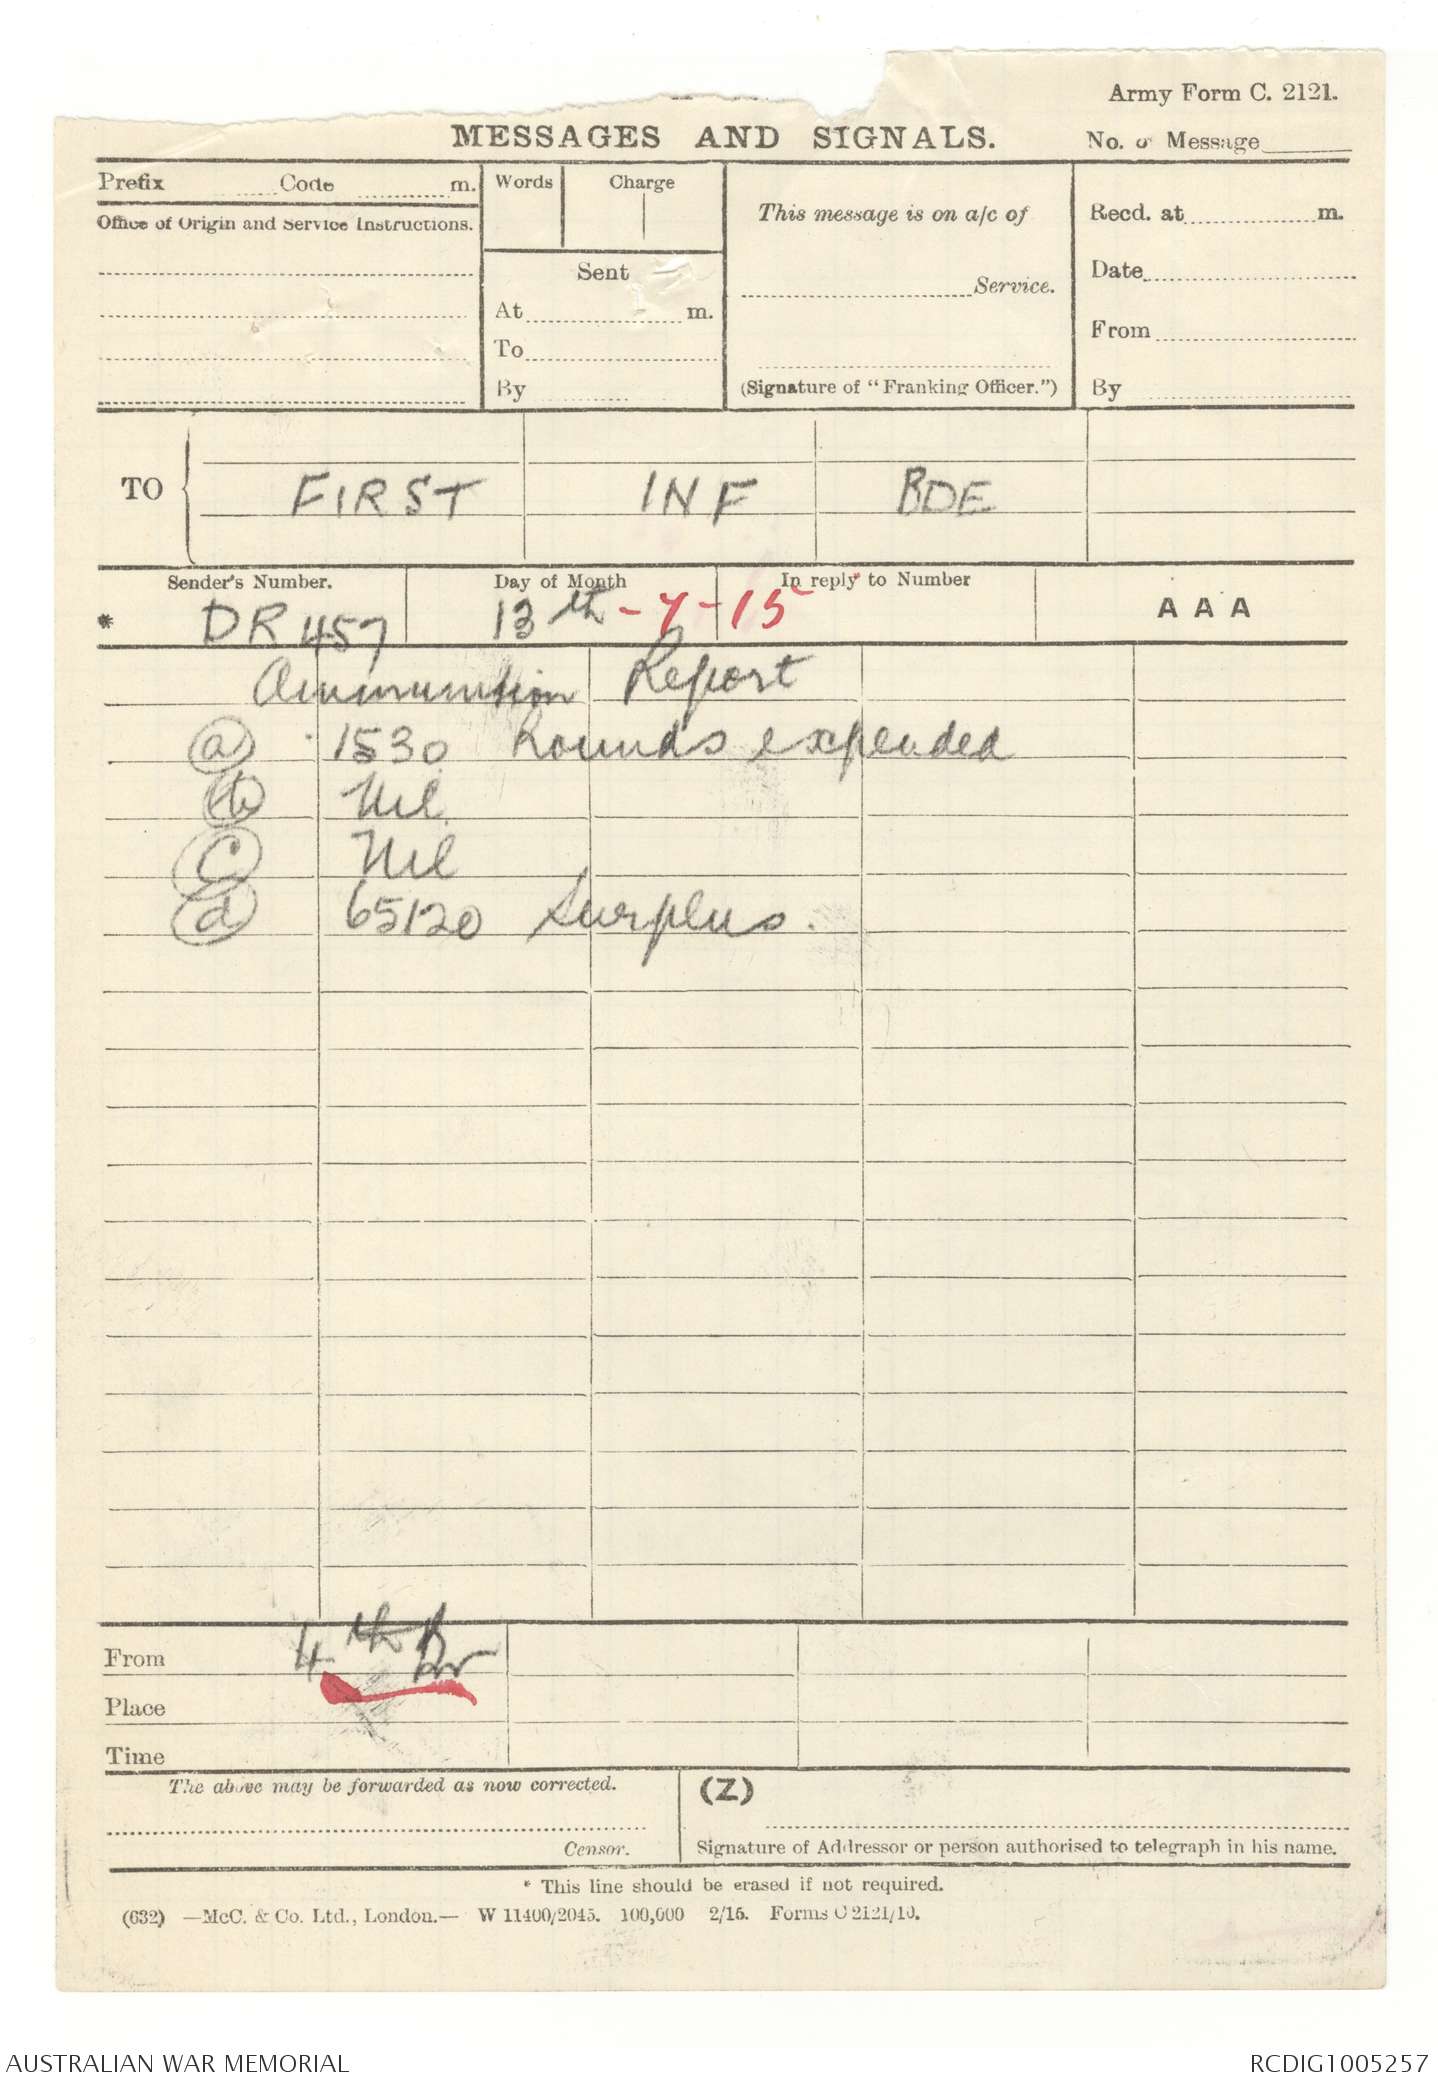 Army Form C. 2121.
MESSAGES AND SIGNALS.
No. of Message
Prefix Code m.
Words Charge
This message is on a/c of
Recd. at m.
Office of Origin and Service Instructions.
Sent
Date
Service.
At m.
From
To
(Signature of "Franking Officer.")
By
By
TO
FIRST INF BDE
Sender's Number. Day of Month In reply to Number
* DR 457 13th -7-15 A A A
Ammunition Report
(a) 1530 Rounds expended
(b) Nil
(c) Nil
(d) 65120 Surplus.
From 4th Bn
Place
Time
The above may be forwarded as now corrected. (Z)
Censor. Signature of Addressor or person authorised to telegraph in his name.
* This line should be erased if not required.
(632) —McC. & Co. Ltd., London.— W 11400/2045. 100,000 2/15. Forms C 2121/10.
AUSTRALIAN WAR MEMORIAL RCDIG1005257